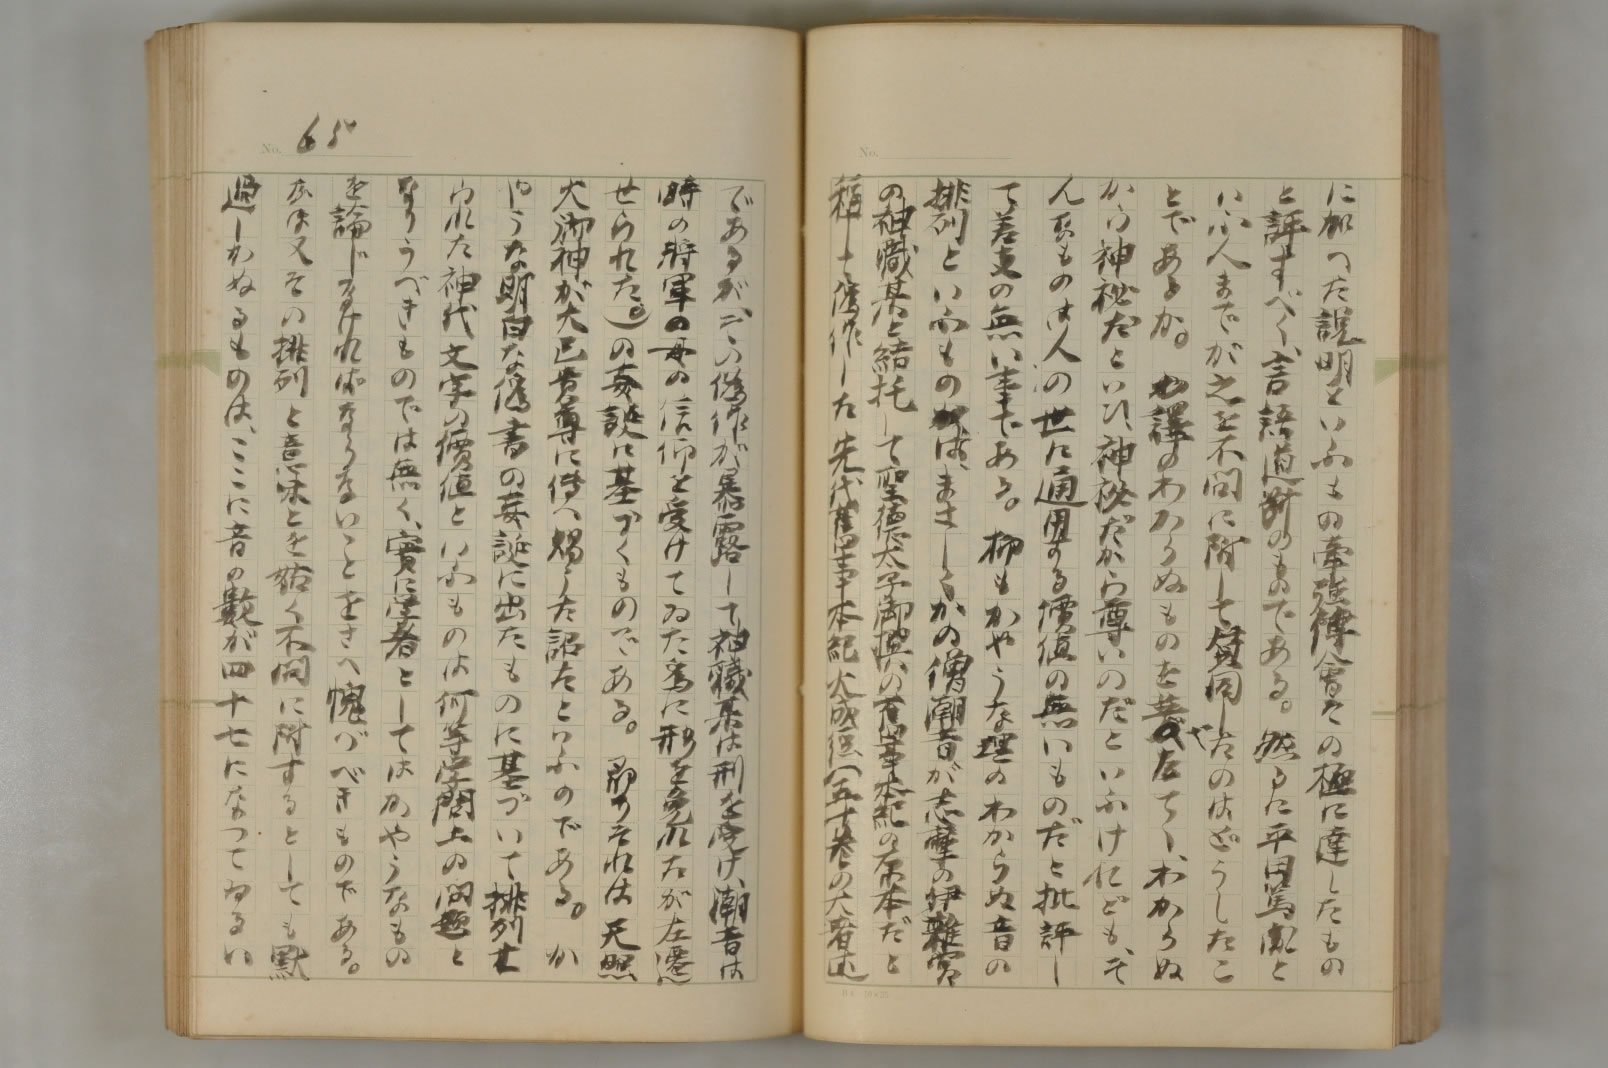 No.
に加へた説明といふもの牽強傅會その極に達したもの
と評すべく、言語道斷のものである。然るに平田篤胤と
いふ人までが之を不問に附して賛同したのはどうしたこ
とであるか。譯のわからぬものを甚だしくわからぬ
から神秘だといひ、神秘だから尊いのだといふけれども、そ
んなものは人の世に通用する價値の無いものだと批評し
て差支の無い事である。抑もかやうな理のわからぬ音の
排列といふものは、まさしくかの僧潮音が志摩の伊雜宮
の神職某と結托して聖徳太子御撰の舊事本紀の原本だと
稱して僞作した先代舊事本紀大成經(五十巻の大著述
No. 65
であるが、この僞作が暴露して神職某は刑を受け、潮音は
時の將軍の母の信仰を受けてゐた爲に刑を免れたが左遷
せられた。)の妄誕に基づくものである。即ちそれは天照
大御神が大己貴尊に傳へ賜うた詔だといふのである。か
やうな明白な僞書の妄誕に出たものに基づいて排列せ
られた神代文字の價値といふものは何等學問上の問題と
なりうべきものでは無く、實に學者としてはかやうなもの
を論じなければならないことをさへ愧づべきものである。
なほ又その排列と意味とを姑く不問に附するとしても默
過しかぬるものは、ここに音の數が四十七になつてゐるい